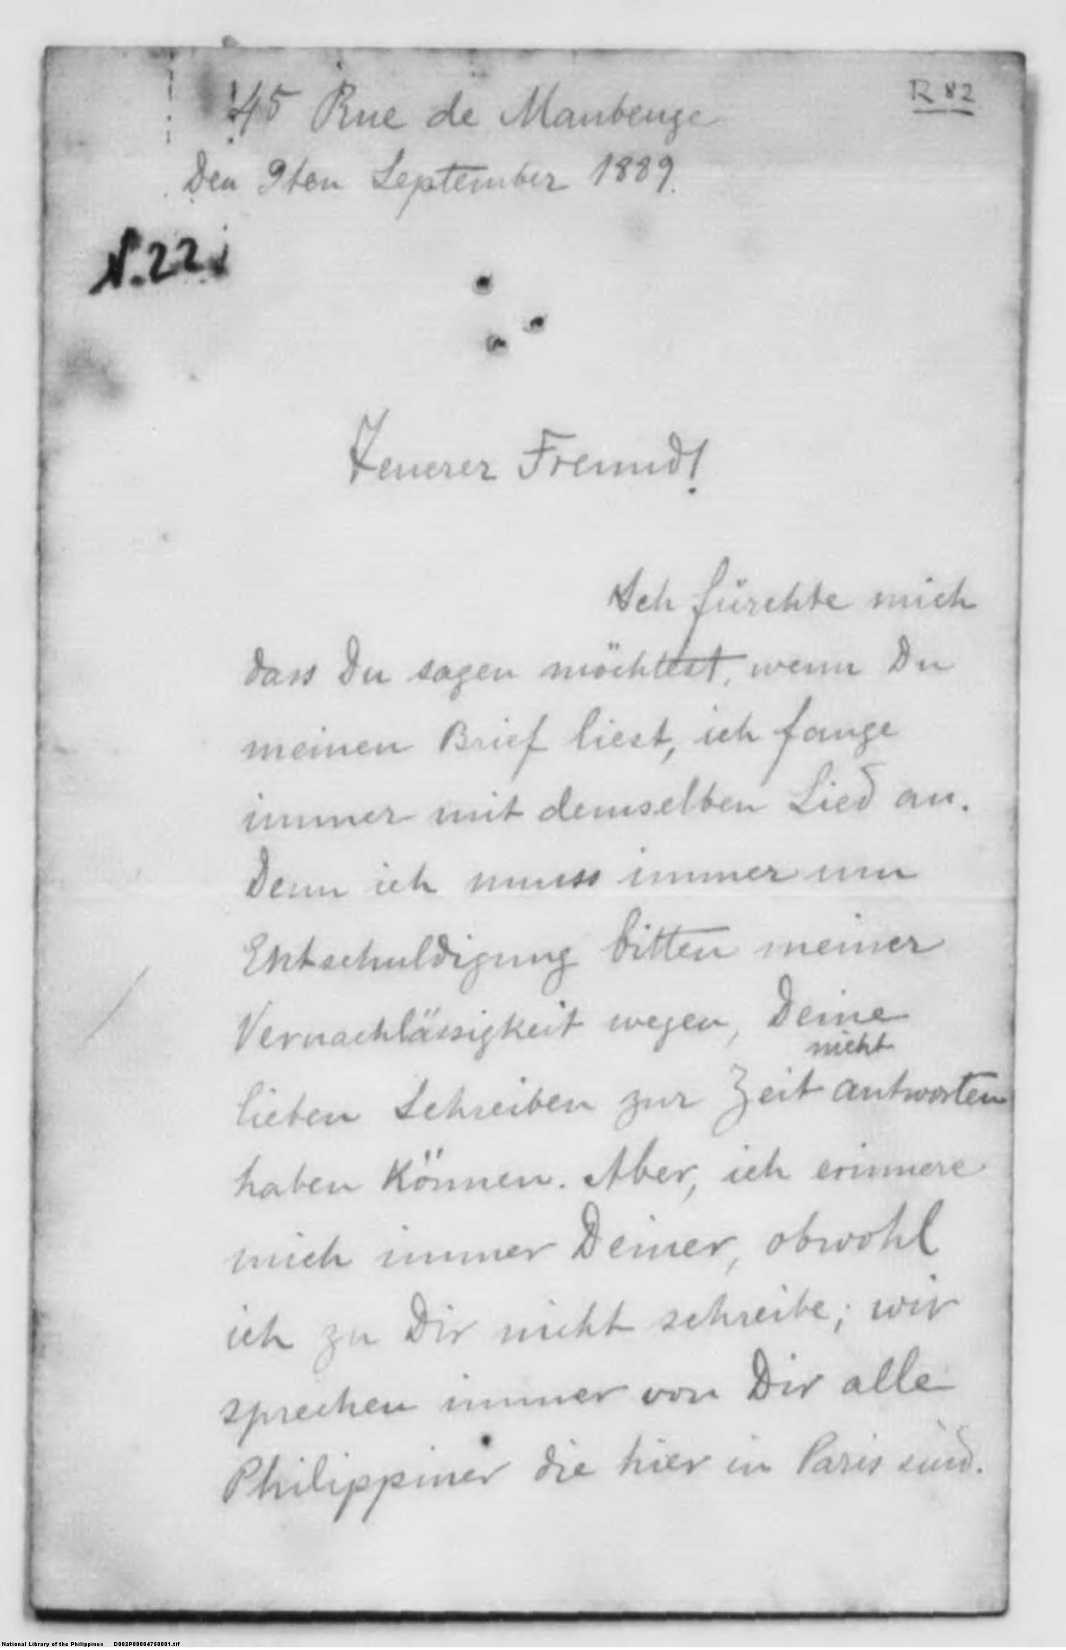 R 82
45 Rue de Maubeuge
Den 9ten September 1889.
N. 22
Teuerer Freund!
Ich fürchte mich
dass Du sagen möchtest, wenn Du
meinen Brief liest, ich fange
immer mit demselben Lied an.
Denn ich muss immer um
Entschuldigung bitten meiner
Vernachlässigkeit wegen, Deine
nicht
lieben Schreiben zur Zeit antworten
haben können. Aber, ich erinnere
mich immer Deiner, obwohl
ich zu Dir nicht schreibe; wir
sprechen immer von Dir alle
Philippiner die hier in Paris sind.
National Library of the Philippines D002P00004760001.tif